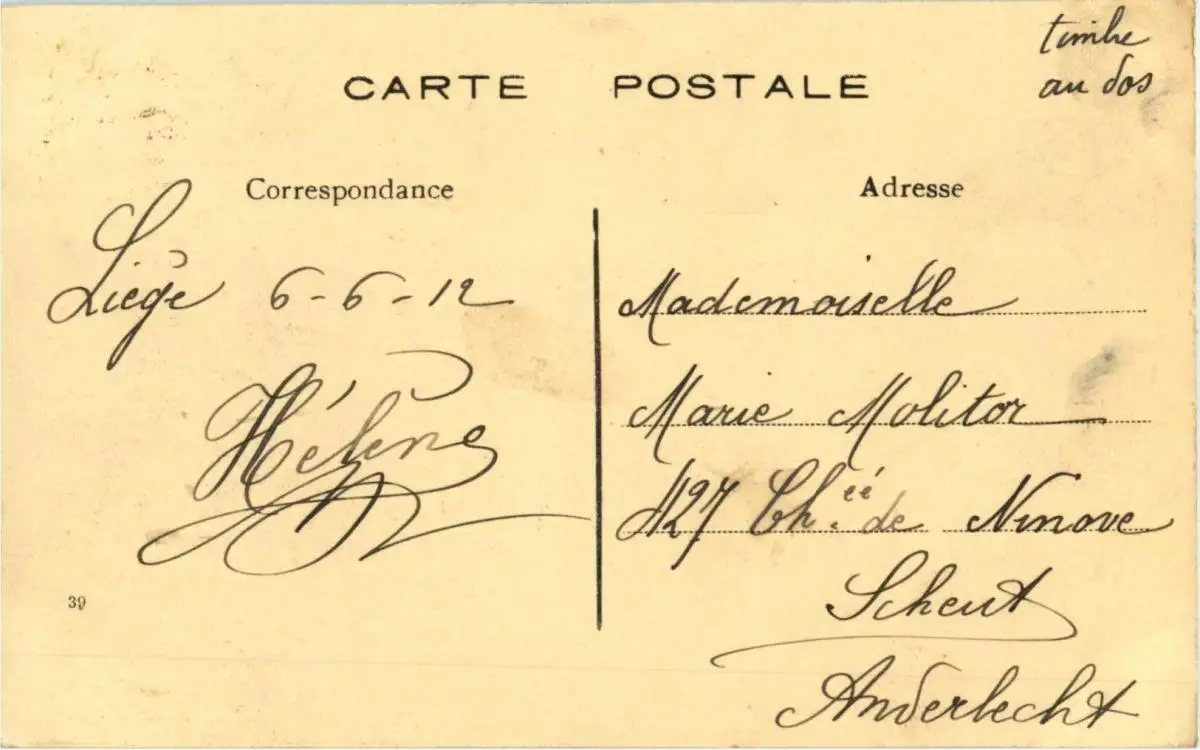 timbre
au dos
CARTE POSTALE
Correspondance
Adresse
Liège 6-6-12
Hélène
39
Mademoiselle
Marie Molitor
427 Ch.éé de Ninove
Scheut
Anderlecht